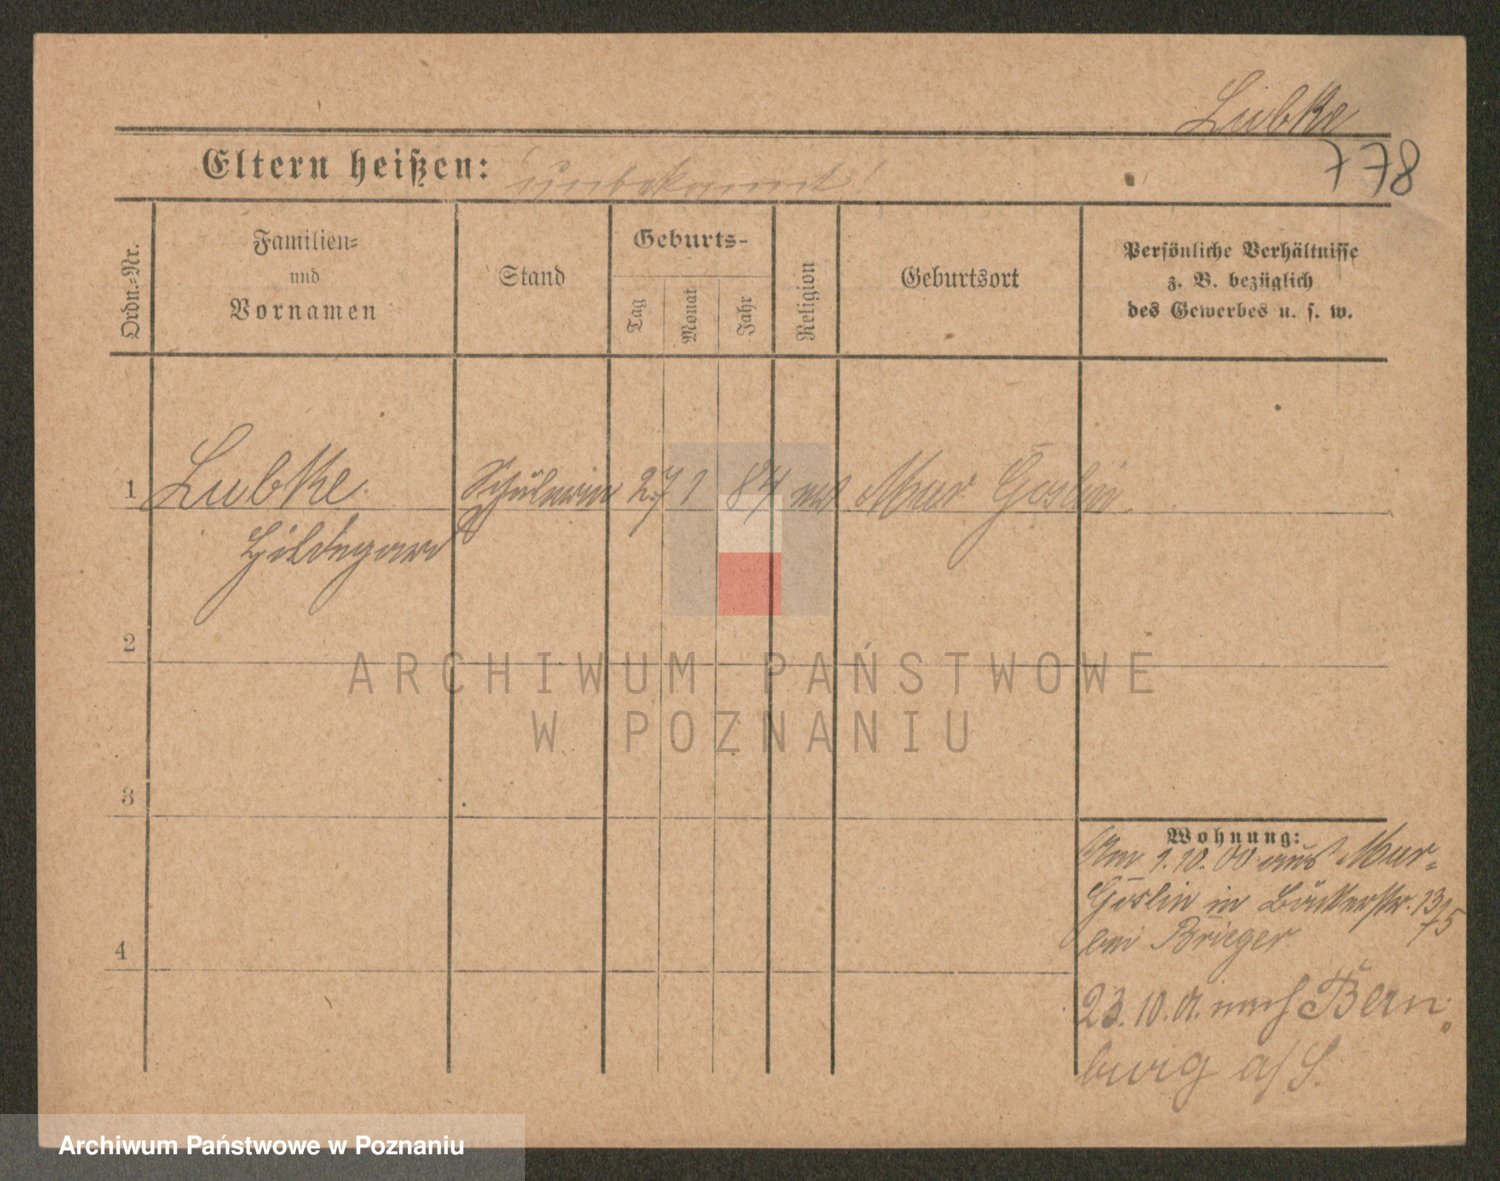 Lubke
778
Eltern heißen: unbekannt!
Ordn.-Nr.
Familien-
und
Vornamen
Stand
Geburts-
Tag
Monat
Jahr
Religion
Geburtsort
Persönliche Verhältnisse
z. B. bezüglich
des Gewerbes u. s. w.
1 Lubke Schülerin 27 1 84 ev Mur. Goslin
Hildegard
2
3
4
Wohnung:
Am 1.10.00 aus Mur-
Goslin in Bäckerstr. 13/15
bei Brieger
23.10.01. nach Bern
burg a/S.
ARCHIWUM PAŃSTWOWE
W POZNANIU
Archiwum Państwowe w Poznaniu